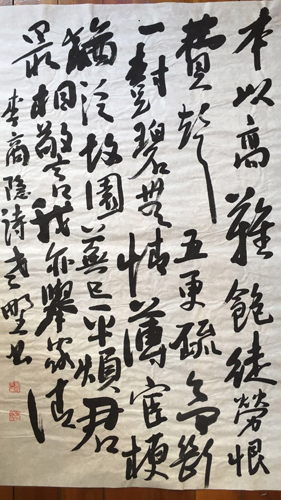 本以高難飽徒勞恨
費聲五更疏欲斷
一樹碧無情薄宦梗
猶泛故園蕪已平煩君
最相警我亦舉家清
李商隱詩